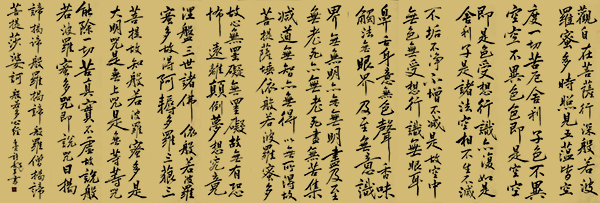 觀自在菩薩行深般若波
羅蜜多時照見五蘊皆空
度一切苦厄舍利子色不異
空空不異色色即是空空
即是色受想行識亦復如是
舍利子是諸法空相不生不滅
不垢不淨不增不減是故空中
無色無受想行識無眼耳
鼻舌身意無色聲香味
觸法無眼界乃至無意識
界無無明亦無無明盡乃至
無老死亦無老死盡無苦集
滅道無智亦無得以無所得故
菩提薩埵依般若波羅蜜多
故心無罣礙無罣礙故無有恐
怖遠離顛倒夢想究竟
涅槃三世諸佛依般若波羅
蜜多故得阿耨多羅三藐三
菩提故知般若波羅蜜多是
大明咒是無上咒是無等等咒
能除一切苦真實不虛故說般
若波羅蜜多咒即說咒曰揭
諦揭諦般羅揭諦般羅僧揭諦
菩提莎婆訶 般若多心經